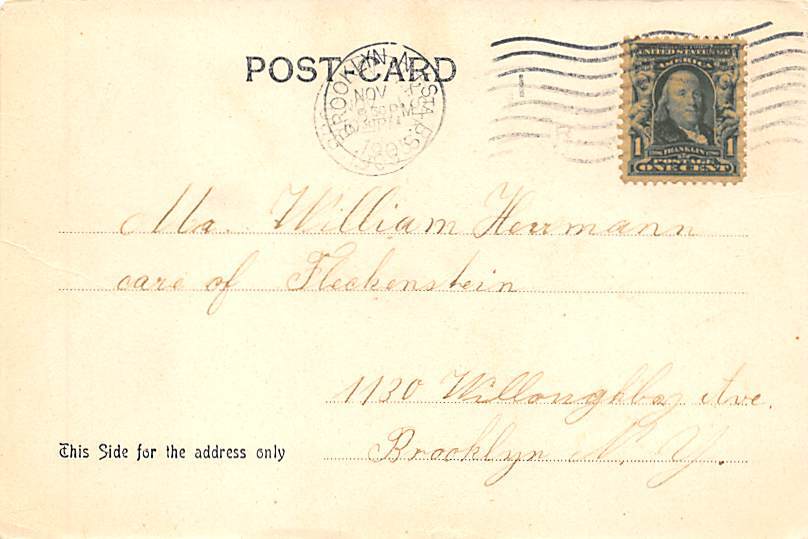 POST CARD
BROOKLYN, N.Y. STA. B.S.
NOV
PM
190
UNITED STATES OF
AMERICA
1 FRANKLIN 1
POSTAGE
ONE CENT
Mr. William Herrmann
care of Fleckenstein
1130 Willoughby Ave.
Brooklyn N. Y.
This Side for the address only